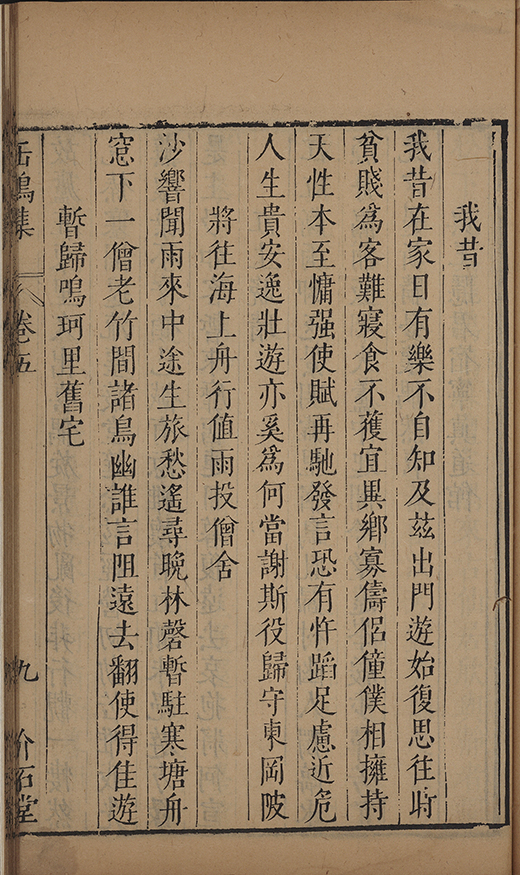 我昔
我昔在家日有樂不自知及茲出門遊始復思往時
貧賤為客難寢食不獲宜異鄉寡儔侶僮僕相擁持
天性本至慵强使賦再馳發言恐有忤蹈足慮近危
人生貴安逸壯遊亦奚為何當謝斯役歸守東岡陂
將往海上舟行值雨投僧舍
沙響聞雨來中途生旅愁遙尋晚林磬暫駐寒塘舟
窓下一僧老竹間諸鳥幽誰言阻遠去翻使得佳遊
暫歸鳴珂里舊宅
缶鳴集 卷五 九 竹石堂